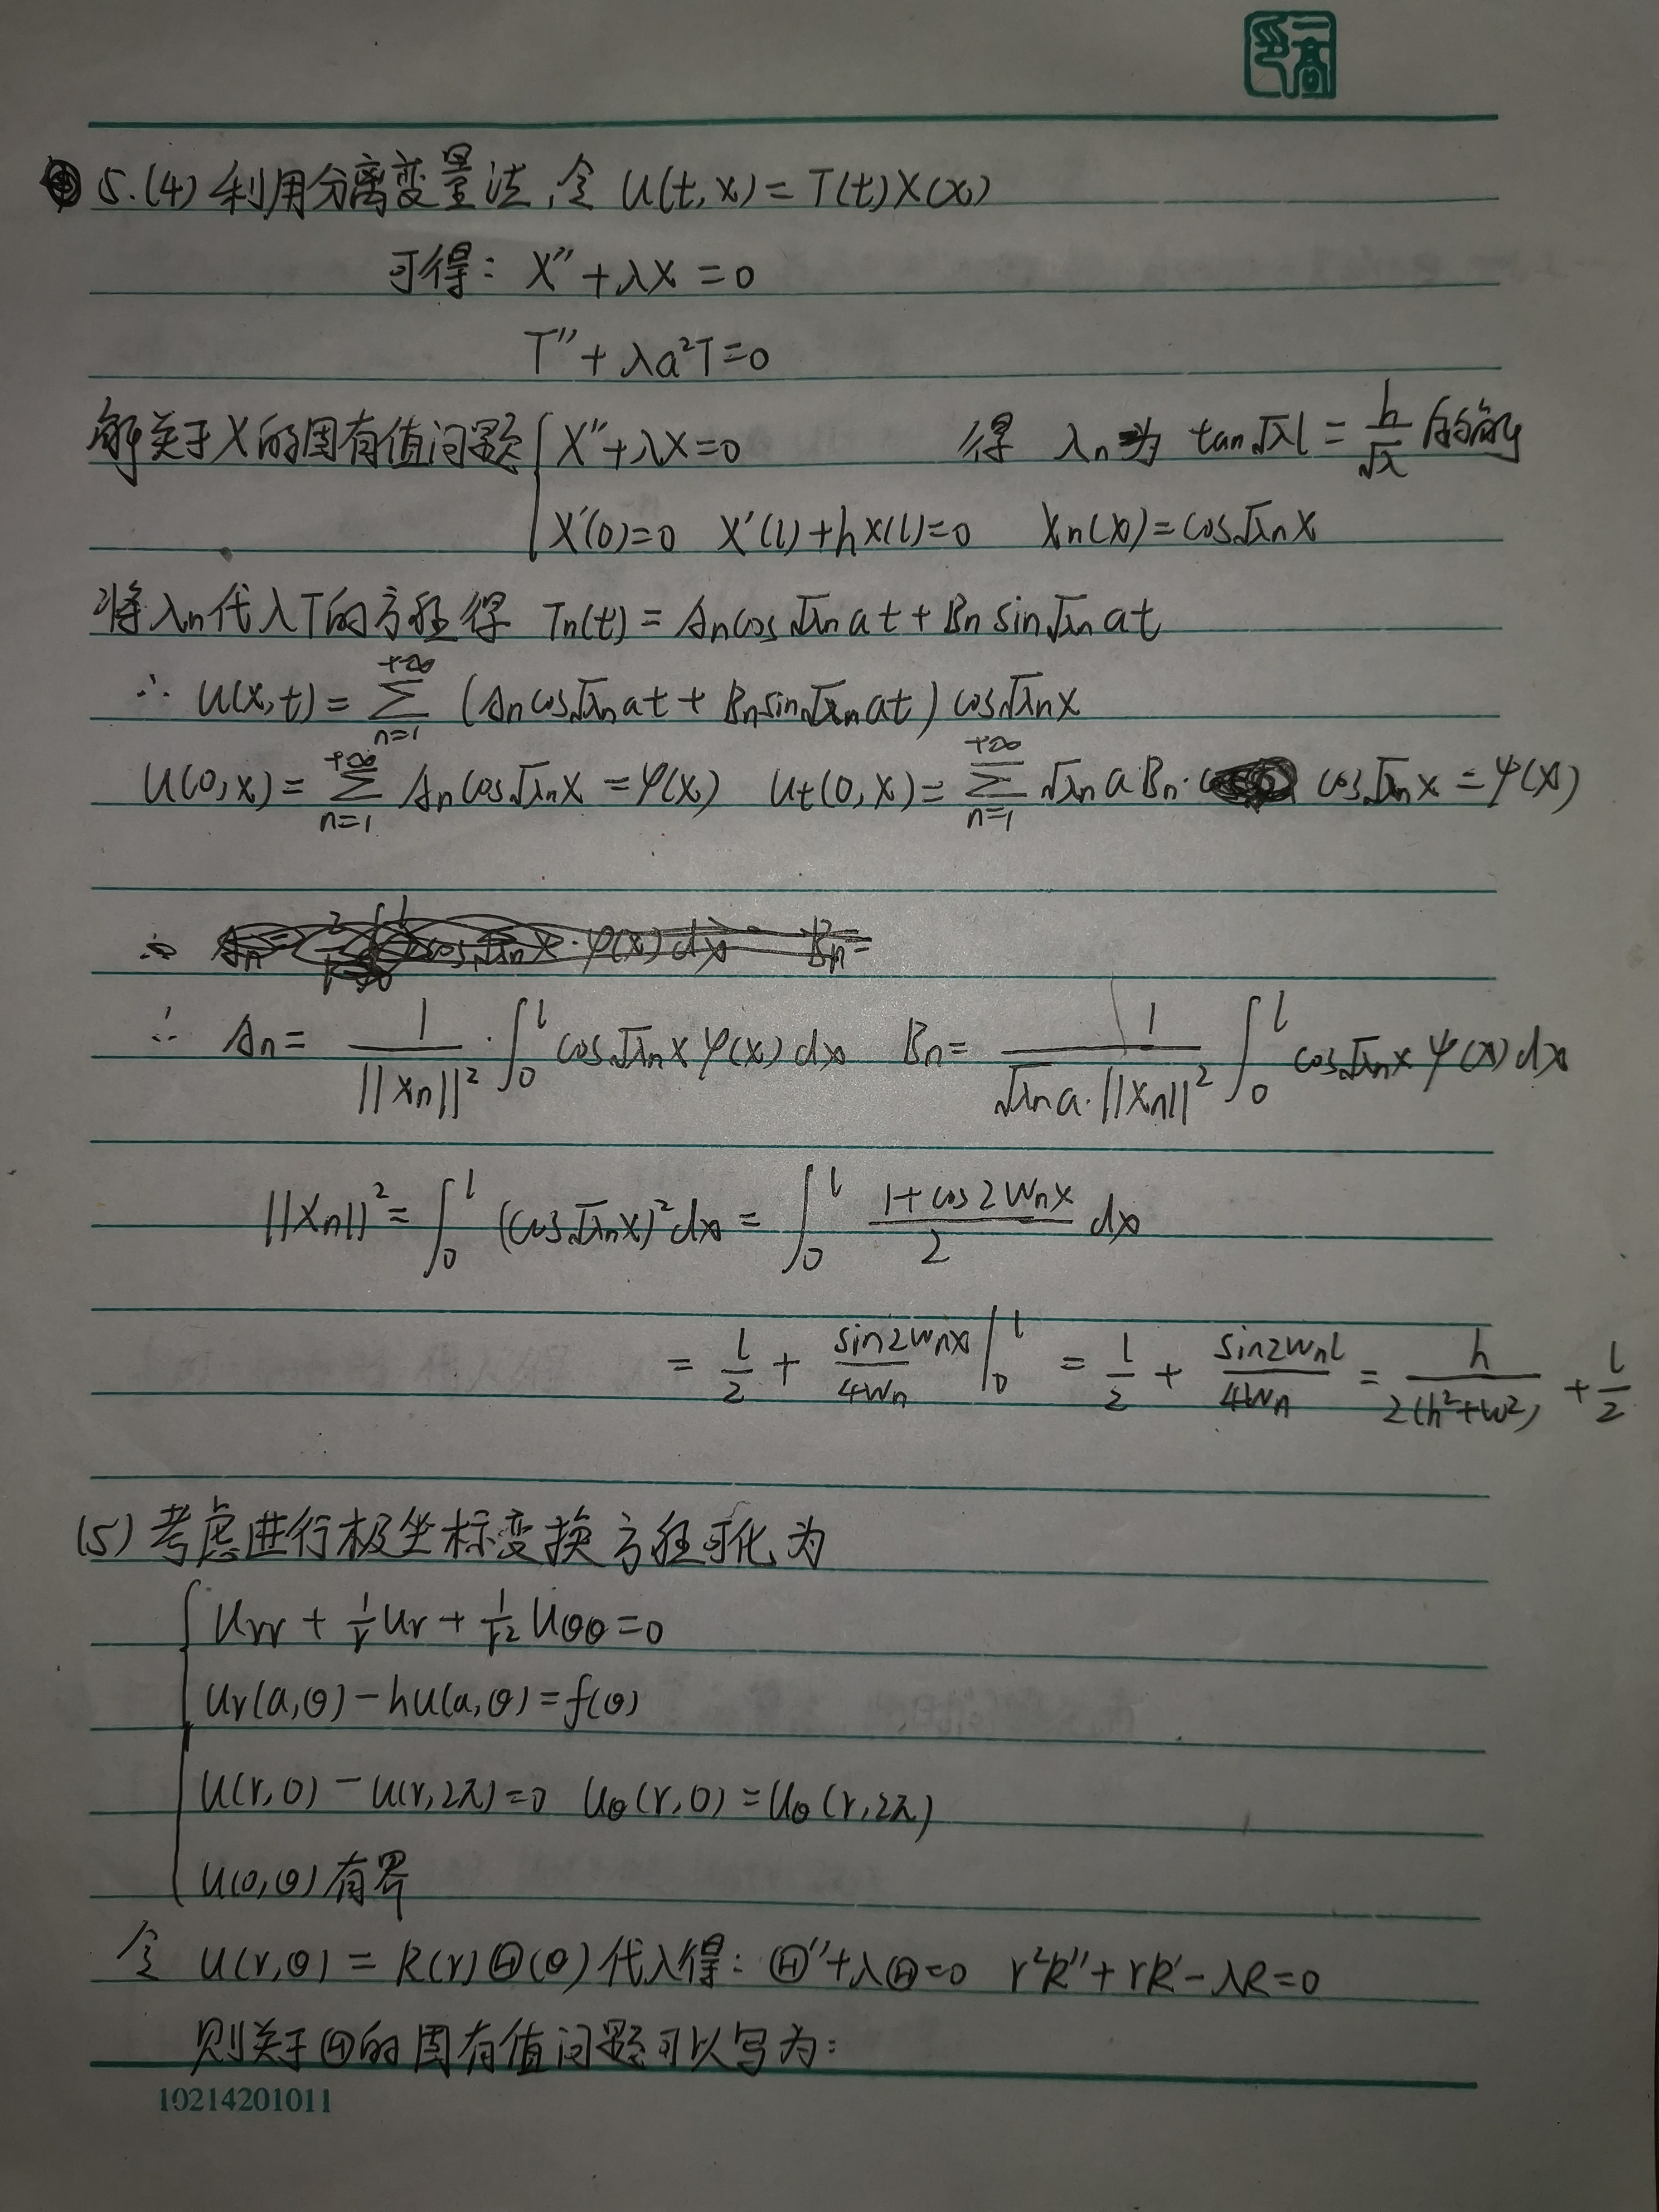 5.(4) 利用分离变量法,令 U(t,x)=T(t)X(x)
可得: X''+λX=0
T''+λa²T=0
解关于X的固有值问题{ X''+λX=0 得 λn为 tan√λl = h/√λ 的解
X'(0)=0 X'(l)+hX(l)=0 Xn(x)=cos√λn x
将λn代入T的方程得 Tn(t)=An cos√λn at + Bn sin√λn at
∴ U(x,t)= Σ_{n=1}^{+∞} (An cos√λn at + Bn sin√λn at) cos√λn x
U(0,x)= Σ_{n=1}^{+∞} An cos√λn x = φ(x) Ut(0,x)= Σ_{n=1}^{+∞} √λn a Bn · cos√λn x = ψ(x)
∴ An = 1/||Xn||² · ∫_0^l cos√λn x φ(x)dx Bn = 1/(√λn a·||Xn||²) ∫_0^l cos√λn x ψ(x)dx
||Xn||² = ∫_0^l (cos√λn x)² dx = ∫_0^l (1+cos2Wnx)/2 dx
= l/2 + sin2Wnx/4Wn |_0^l = l/2 + sin2Wnl/4Wn = h/2(h²+W²) + l/2
(5) 考虑进行极坐标变换方程可化为
{ Urr + 1/r Ur + 1/r² Uθθ = 0
Ur(a,θ) - hU(a,θ) = f(θ)
U(r,0) - U(r,2π)=0 Uθ(r,0)=Uθ(r,2π)
U(0,θ)有界
令 U(r,θ) = R(r)Θ(θ) 代入得: Θ''+λΘ=0 r²R''+rR'-λR=0
则关于Θ的固有值问题可以写为:
10214201011